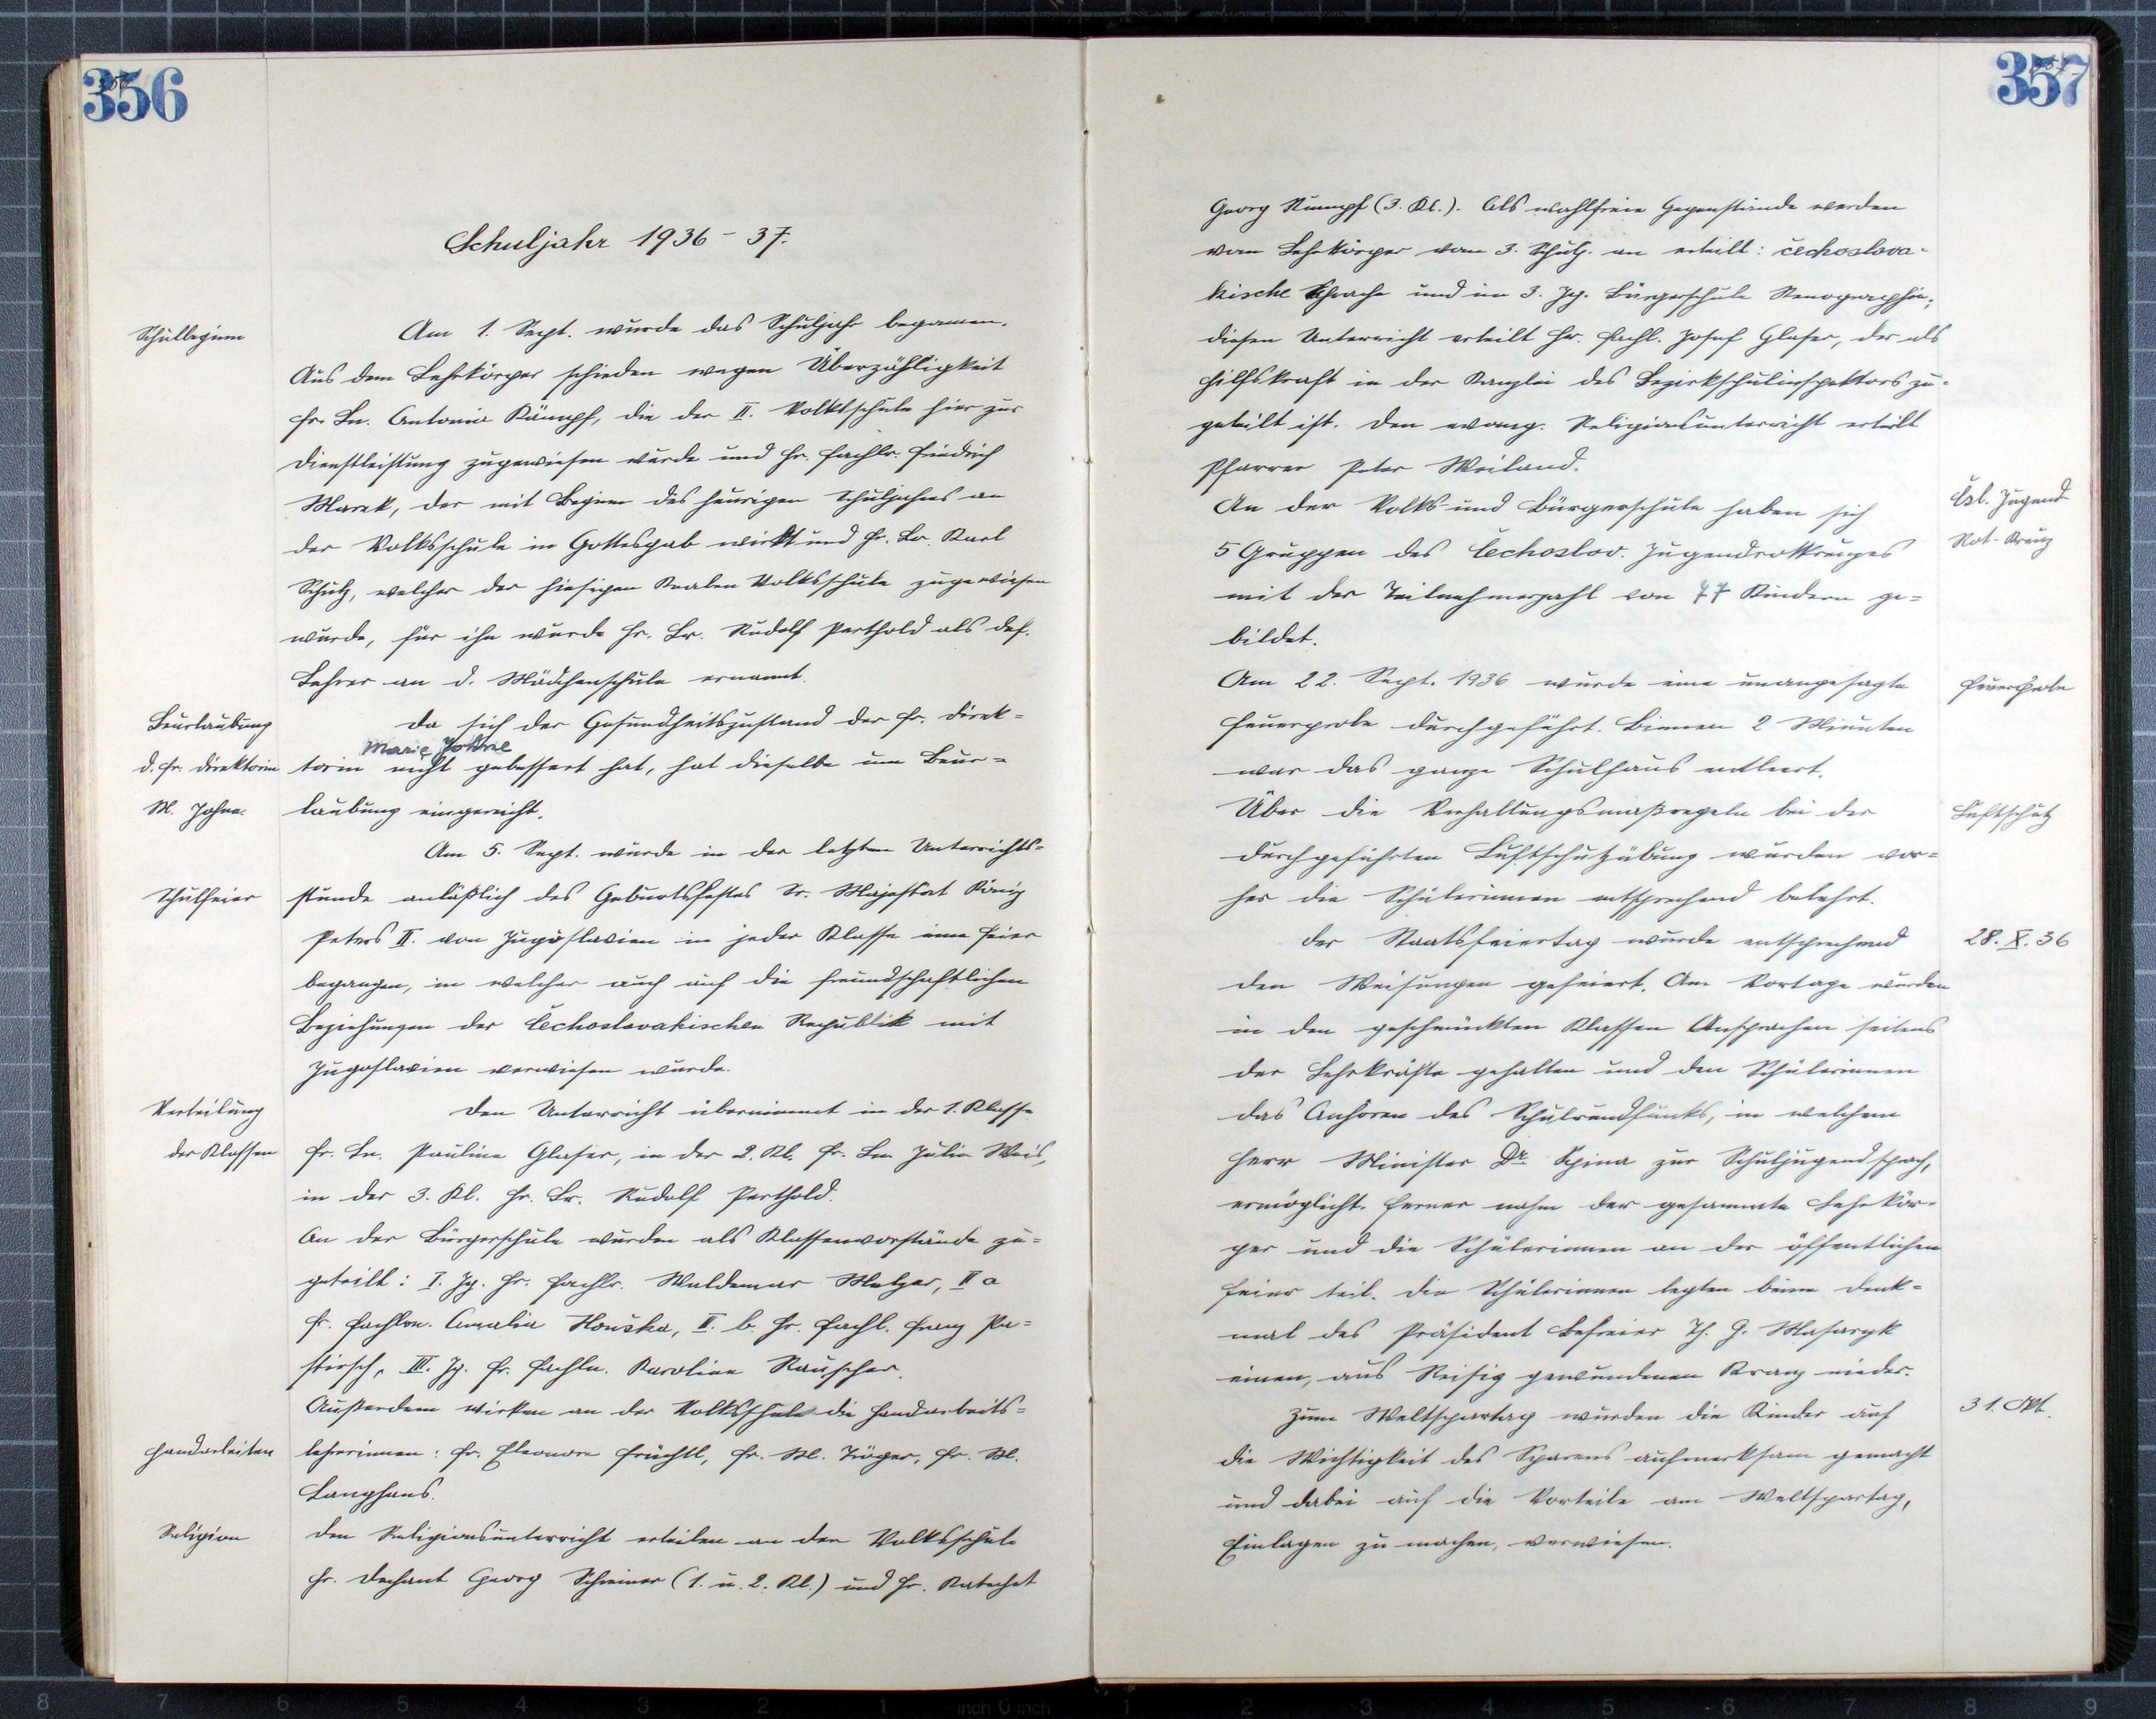 356
Schuljahr 1936-37.
Schulbeginn
Am 1. Sept. wurde das Schuljahr begonnen.
Aus dem Lehrkörper schieden wegen Überzähligkeit
Fr. Ln. Antonia Kämpf, die der II. Volksschule hier zur
Dienstleistung zugewiesen wurde und Hr. Fachlr. Friedrich
Marek, der mit Beginn des heurigen Schuljahres an
der Volksschule in Gottesgab wirkt und Hr. Lr. Karl
Schutz, welcher der hiesigen Knaben Volksschule zugewiesen
wurde, für ihn wurde Hr. Lr. Rudolf Parthold als def.
Lehrer an d. Mädchenschule ernannt.
Beurlaubung
d. Fr. Direktorin
M. Johne.
Da sich der Gesundheitszustand der Fr. Direk=
Marie Johne
torin nicht gebessert hat, hat dieselbe um Beur=
laubung eingereicht.
Am 5. Sept. wurde in der letzten Unterrichts=
Schulfeier
stunde anläßlich des Geburtsfestes Sr. Majestät König
Peters II. von Jugoslavien in jeder Klasse eine Feier
begangen, in welcher auch auf die freundschaftlichen
Beziehungen der Čechoslovakischen Republik mit
Jugoslavien verwiesen wurde.
Verteilung
der Klassen
Den Unterricht übernimmt in der 1. Klasse
Fr. Ln. Pauline Glaser, in der 2. Kl. Fr. Ln. Julie Weis,
in der 3. Kl. Hr. Lr. Rudolf Parthold.
An der Bürgerschule wurden als Klassenvorstände zu=
geteilt: I. Jg. Hr. Fachlr. Waldemar Metzer, II a
Fr. Fachln. Amalia Houška, II. b. Hr. Fachl. Franz Pa=
stirsch, III. Jg. Fr. Fachln. Karoline Rauscher.
Außerdem wirken an der Volksschule die Handarbeits=
Handarbeiten
lehrerinnen: Fr. Eleonore Früchtl, Fr. M. Jäger, Fr. M.
Langhans.
Religion
Den Religionsunterricht erteilen an der Volksschule
Hr. Dechant Georg Schreiner (1. u. 2. Kl.) und Hr. Katechet
357
Georg Rumpf (3. Kl.). Als wahlfreie Gegenstände werden
vom Lehrkörper vom 3. Schulj. an erteilt: čechoslova-
kische Sprache und im 3. Jg. Bürgerschule Stenographie,
diesen Unterricht erteilt Hr. Fachl. Josef Glaser, der als
Hilfskraft in der Kanzlei des Bezirkschulinspektors zu-
geteilt ist. Den evang. Religionsunterricht erteilt
Pfarrer Peter Weiland.
Čsl. Jugend
Rot-Kreuz
An der Volks- und Bürgerschule haben sich
5 Gruppen des Čechoslov. Jugendrotkreuzes
mit der Teilnehmerzahl von 77 Kindern ge=
bildet.
Feuerprobe
Am 22. Sept. 1936 wurde eine unangesagte
Feuerprobe durchgeführt. Binnen 2 Minuten
war das ganze Schulhaus entleert.
Luftschutz
Über die Verhaltungsmaßregeln bei der
durchgeführten Luftschutzübung wurden vor=
her die Schülerinnen entsprechend belehrt.
28. X. 36
Der Staatsfeiertag wurde entsprechend
den Weisungen gefeiert. Am Vortage wurden
in den geschmückten Klassen Ansprachen seitens
der Lehrkräfte gehalten und den Schülerinnen
das Anhören des Schulrundfunks, in welchem
Herr Minister Dr Spina zur Schuljugend sprach,
ermöglicht. Ferner nahm der gesammte Lehrkör-
per und die Schülerinnen an der öffentlichen
Feier teil. Die Schülerinnen legten beim Denk=
mal des Präsident Befreier Th. G. Masaryk
einen, aus Reisig gewundenen Kranz nieder.
31. Okt.
Zum Weltspartag wurden die Kinder auf
die Wichtigkeit des Sparens aufmerksam gemacht
und dabei auf die Vorteile am Weltspartag,
Einlagen zu machen, verwiesen.